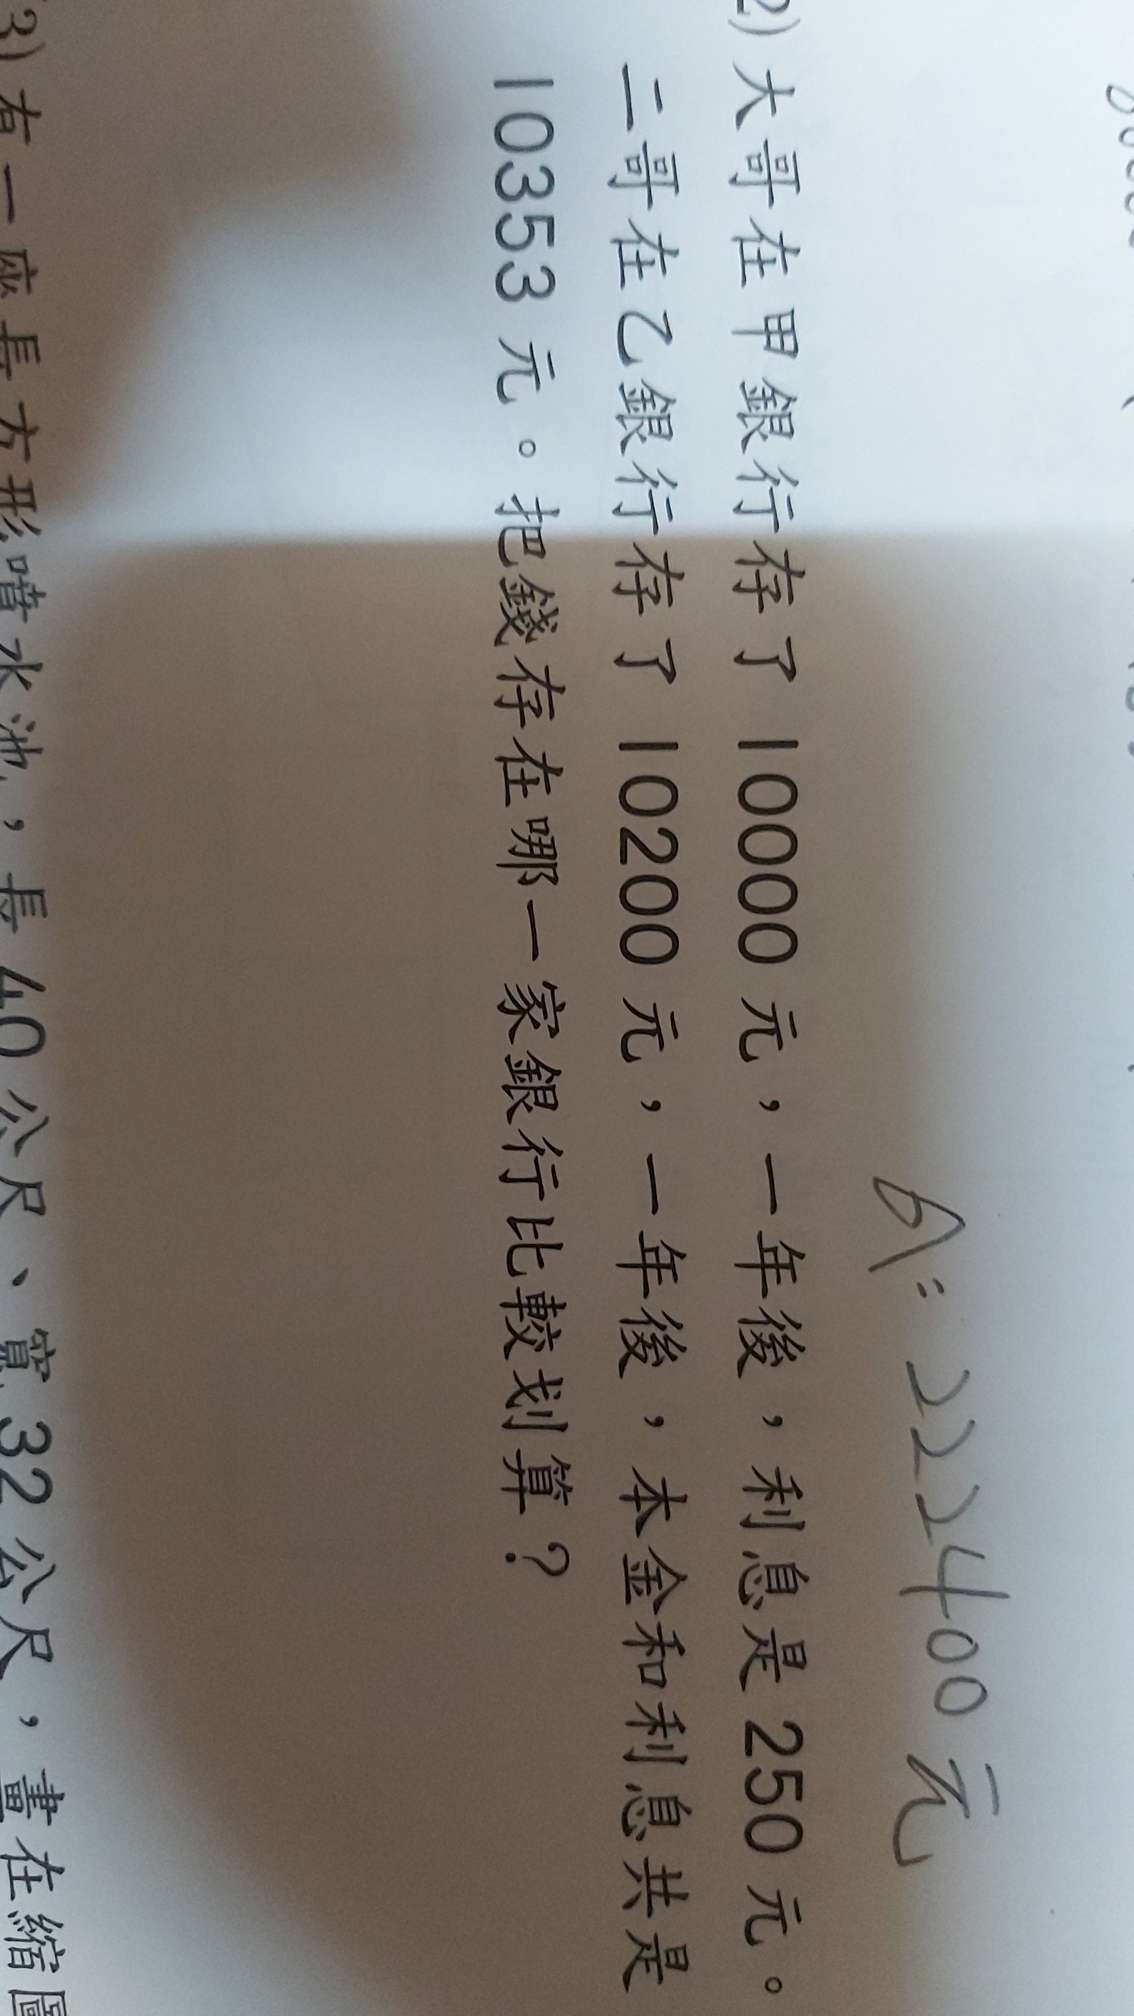 A：22400元
2) 大哥在甲銀行存了 10000 元，一年後，利息是 250 元。
二哥在乙銀行存了 10200 元，一年後，本金和利息共是
10353 元。把錢存在哪一家銀行比較划算？
3) 有一座長方形噴水池，長 40 公尺、寬 32 公尺，畫在縮圖